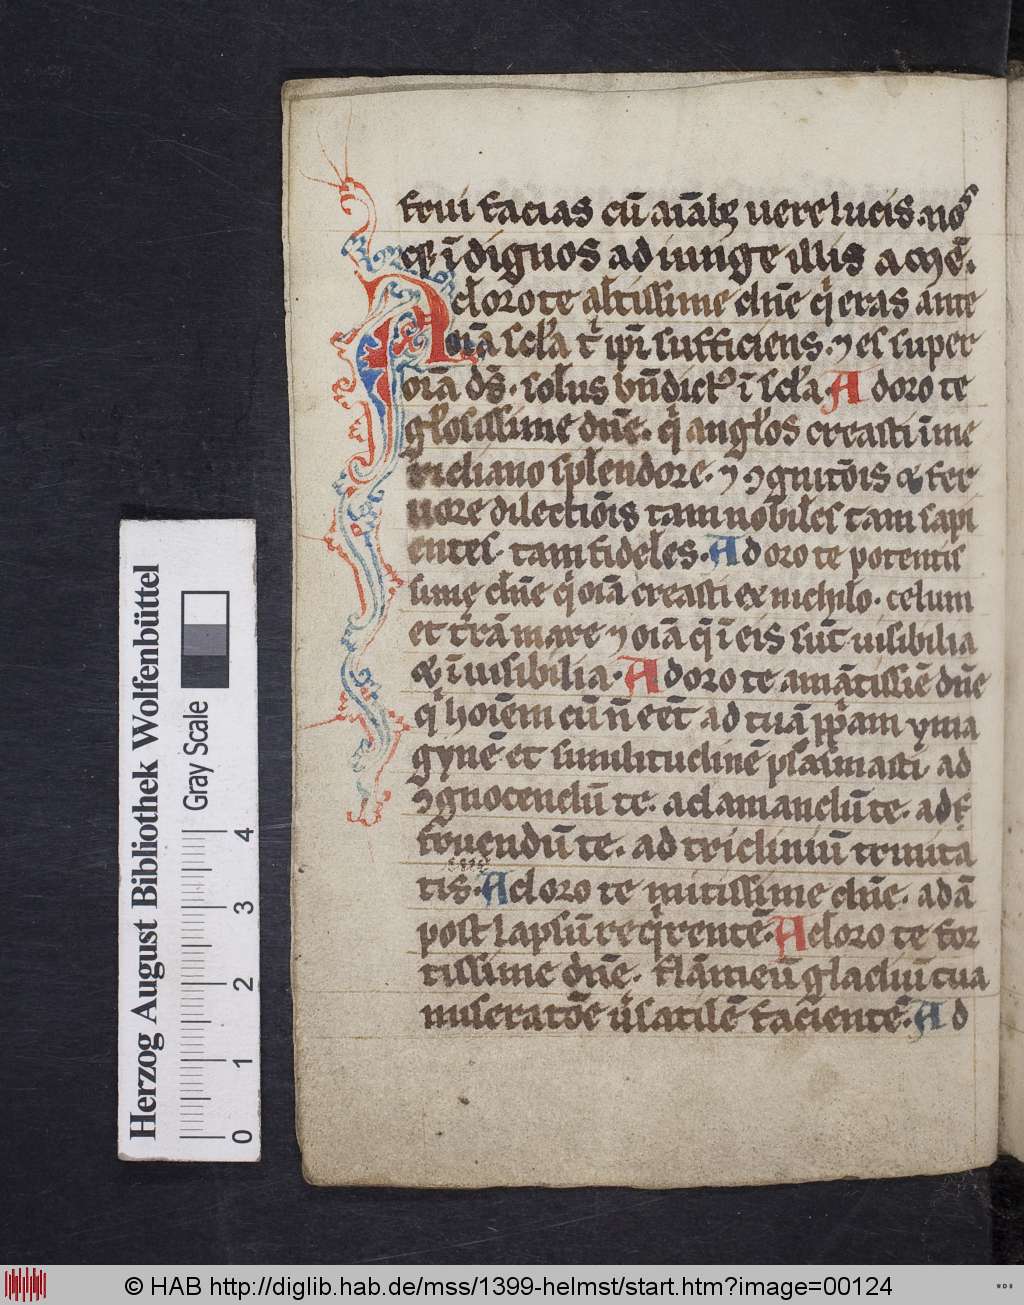 serui facias cū aīabꝫ uere lucis. nos
qꝫ īdignos adiunge illis amē.
Adoro te altissime dn̄e qͥ eras ante
oīa scl̓a ⁊ ip̄i sufficiens. ⁊ es super
oīa dꝰ. solus bn̄dictꝰ ī scl̓a. Adoro te
gl̓osissime dn̄e. qͥ angl̓os creasti ī me
ridiano splendore. ⁊ ꝯgnitōis & fer
uore dilectiōis tam nobiles tam sapi
entes. tam fideles. Adoro te potentis
sime dn̄e qͥ oīa creasti ex nichilo. celum
et t̄rā mare ⁊ oīa q̄ ī eis sūt uisibilia
& īuisibilia. Adoro te amātissīe dn̄e
qͥ hoīem cū n̄ eēt ad tuā pp̄am yma
gynē et similitudinē plasmasti ad
ꝯgnocendū te. ad amandū te. ad f
fruendū te. ad tricliniū trinita
tis. Adoro te mitissime dn̄e. adā
post lapsū reqͥrentē. Adoro te for
tissime dn̄e. flāmeū gladiū tua
miseratōe ūsatilē facientē. Ad
Herzog August Bibliothek Wolfenbüttel
Gray Scale
0 1 2 3 4
© HAB http://diglib.hab.de/mss/1399-helmst/start.htm?image=00124